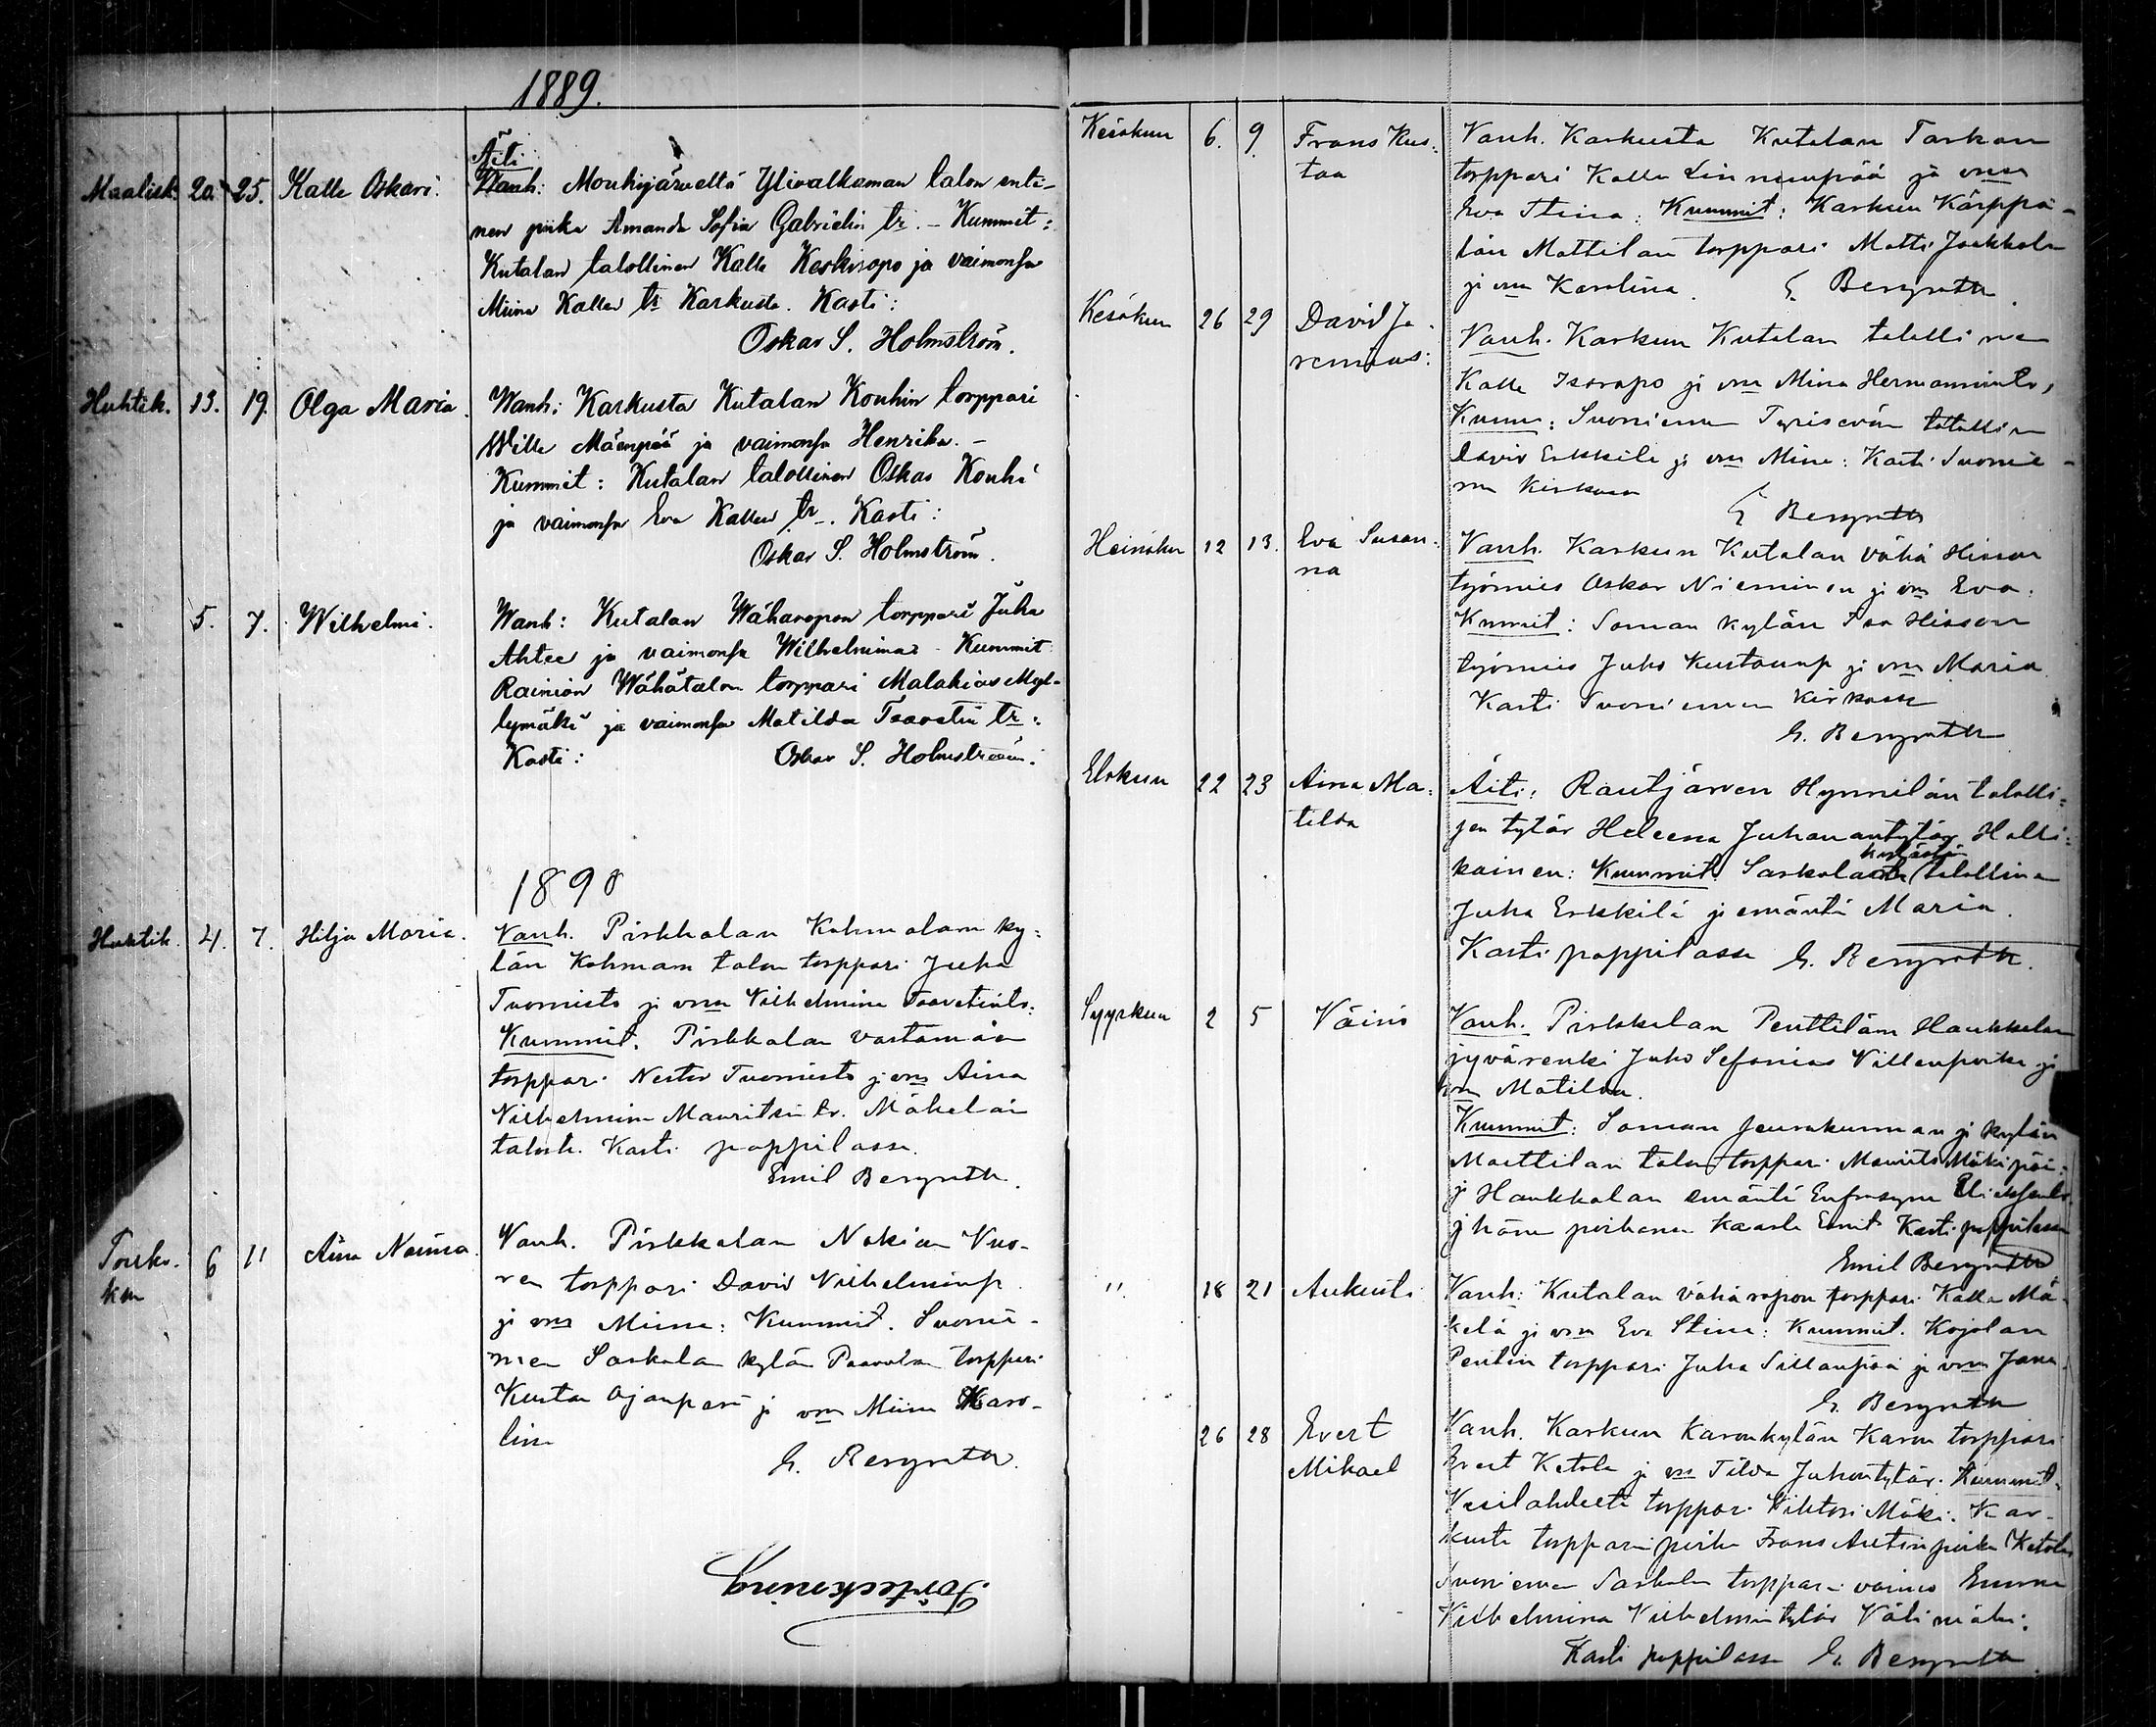 1889.
Äiti
Maalisk. 20. 25. Kalle Oskari. Wanh: Mouhijärveltä Ylivalkaman talon enti-
nen piika Amanda Sofia Gabrielin tr. - Kummit:
Kutalan talollinen Kalle Keskirapo ja vaimonsa
Miina Kallen tr Karkusta. Kasti:
Oskar S. Holmström.
Huhtik. 13. 19. Olga Maria. Wanh: Karkusta Kutalan Kouhin torppari
Wille Mäenpää ja vaimonsa Henrika. -
Kummit: Kutalan talollinen Oskar Kouhi
ja vaimonsa Eva Kallen tr. Kasti:
Oskar S. Holmström.
" 5. 7. Wilhelmi. Wanh: Kutalan Wähärapon torppari Juha
Ahtee ja vaimonsa Wilhelmina - Kummit:
Rainion Wähätalon torppari Malakias Myl-
lymäki ja vaimonsa Matilda Taavetin tr:
Kasti: Oskar S. Holmström.
1890
Huhtik. 4. 7. Hilja Maria. Vanh. Pirkkalan Kuhmalan ky-
län Kohmam talon torppari Juha
Tuomisto ja vmsa Vilhelmina Taavetints:
Kummit. Pirkkalan
torppari Nestor Tuomisto ja vms Aina
Vilhelmina Mauritsin tr. Mäkelän
talosta. Kasti pappilassa.
Emil Bergroth.
Touko-
kun 6 11 Aina Naima. Vanh. Pirkkalan Nokian Vuo-
ren torppari David Vilhelminp.
ja vms Miina: Kummit. Suonie-
men Sarkolan kylän Paavolan torppari
Kustaa Ojanperä ja vms Miina Karo-
lina
E. Bergroth.
Förteckning
Kesäkun 6. 9. Frans Kus-
taa Vanh. Karkusta Kutalan Tarkan
torppari Kalle Linnunpää ja vmsa
Eva Stina: Kummit: Karkun Kärppä-
län Mattilan torppari Matti Jaakkola
ja vms Karolina. E. Bergroth.
Kesäkun 26 29 David Je-
remias: Vanh. Karkun Kutalan talolli nen
Kalle Isorapo ja vms Mina Hermannintr,
Kumm: Suoniemen Tyrisevän talollin
David Erkkilä ja vms Mina: Kasti Suonie-
men kirkossa
E. Bergroth
Heinäkun 12 13. Eva Susan-
na Vanh. Karkun Kutalan vähä Hissan
työmies Oskar Nieminen ja vms Eva.
Kummit: Saman kylän Iso Hissan
työmies Juho Kustaanp ja vms Maria
Kasti Suoniemen kirkossa
E. Bergroth
Elokun 22 23 Aina Ma-
tilda Äiti: Rautjärven Hynnilän talolli-
sen tytär Heleena Juhanantytär Halli-
kainen: Kummit: Sarkolan kylästä talollinen
Juha Erkkilä ja emäntä Maria.
Kasti pappilassa E. Bergroth.
Syyskun 2 5 Väinö Vanh. Pirkkalan Penttilän Haukkalan
jyvärenki Juho Sefanias Villenpoika ja
vms Matilda.
Kummit: Saman seurakunnan ja kylän
Mattilan talon torppari Maurits Mäkipää
ja Haukkalan emäntä Eufrosyne
ja hänen poikansa Kaarle Emil Kasti pappilassa
Emil Bergroth
" 18 21 Aukusti Vanh: Kutalan vähärapon torppari Kalle Mä-
kelä ja vms Eva Stina: Kummit. Kojolan
Pentin torppari Juha Sillanpää ja vms
E. Bergroth
26 28 Evert
Mikael Vanh. Karkun Karonkylän Karon torppari
Evert Ketola ja vms Tilda Juhontytär. Kummit.
Vesilahdelta torppari Vihtori Mäki. Kar-
kusta torpparin poika Frans Antinpoika Ketola
Suoniemen Sarkolan torpparin vaimo Emma
Vilhelmina Vilhelmintytär Välimäki.
Kasti pappilassa E. Bergroth